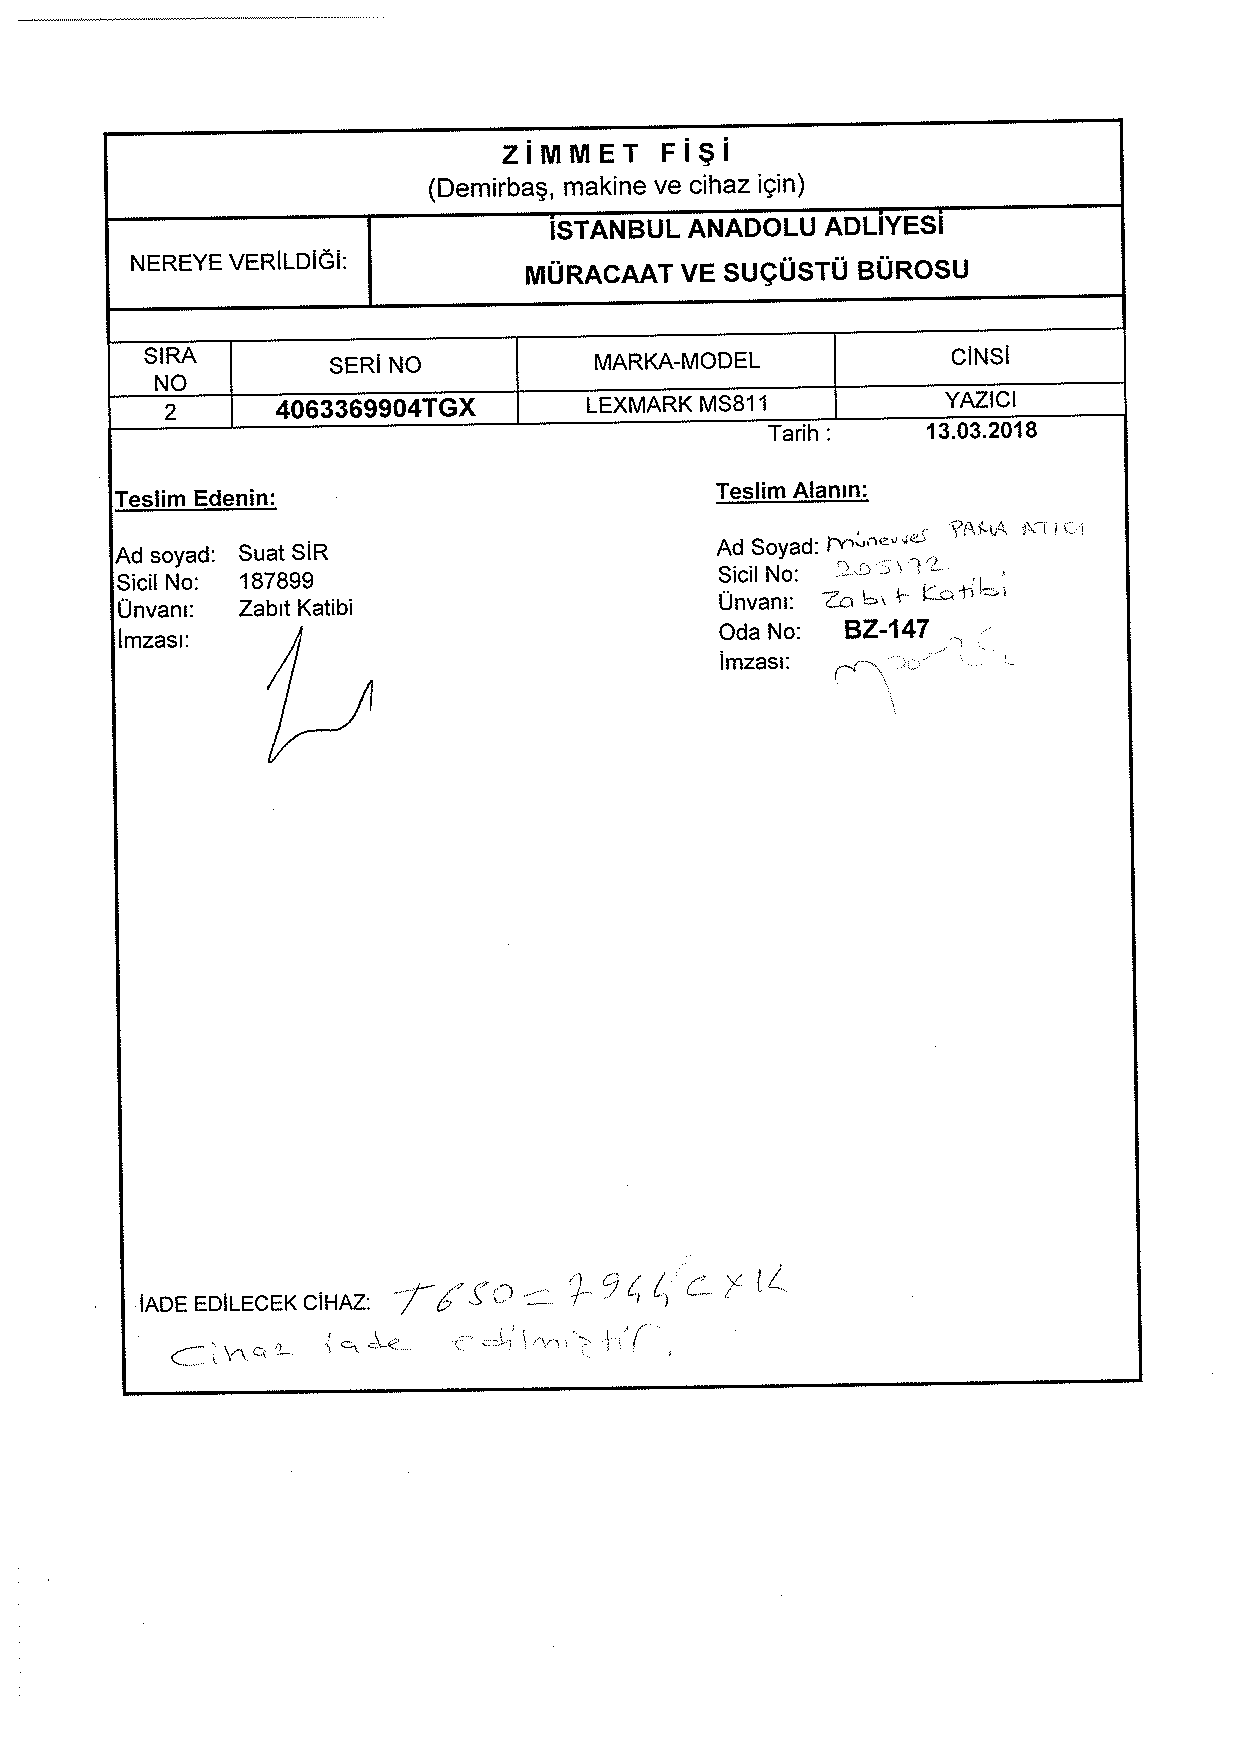 ZİMMET FİŞİ
(Demirbaş, makine ve cihaz için)
NEREYE VERİLDİĞİ:
İSTANBUL ANADOLU ADLİYESİ
MÜRACAAT VE SUÇÜSTÜ BÜROSU
SIRA NO SERİ NO MARKA-MODEL CİNSİ
2 4063369904TGX LEXMARK MS811 YAZICI
Tarih : 13.03.2018
Teslim Edenin:
Ad soyad: Suat SİR
Sicil No: 187899
Ünvanı: Zabıt Katibi
İmzası:
Teslim Alanın:
Ad Soyad: Münevver ATICI
Sicil No:
Ünvanı: Zabıt Katibi
Oda No: BZ-147
İmzası:
İADE EDİLECEK CİHAZ: T650 = 7944CXK
Cihaz iade edilmiştir.